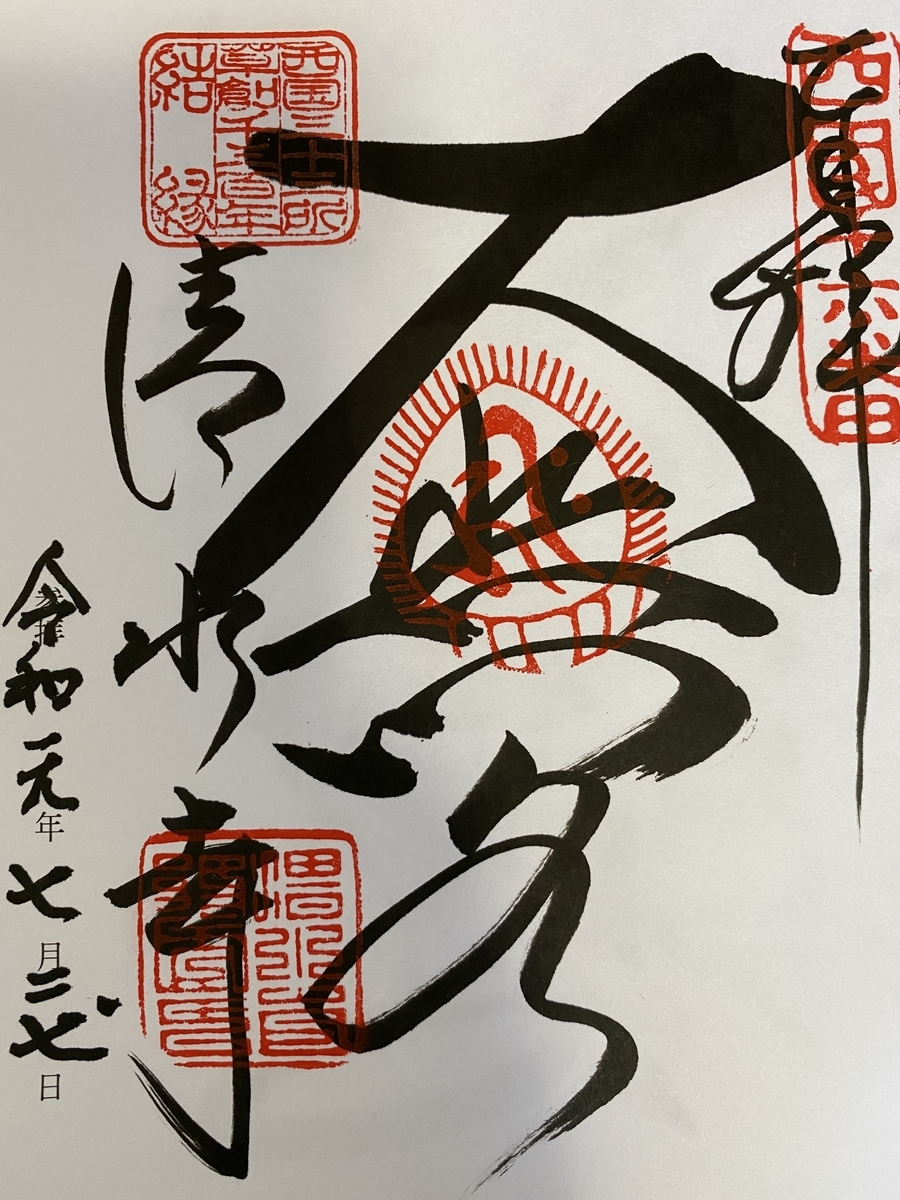 奉拝
西国十六番
大悲閣
西国三十三所
草創千三百年
結縁
清水寺
令和元年七月二七日